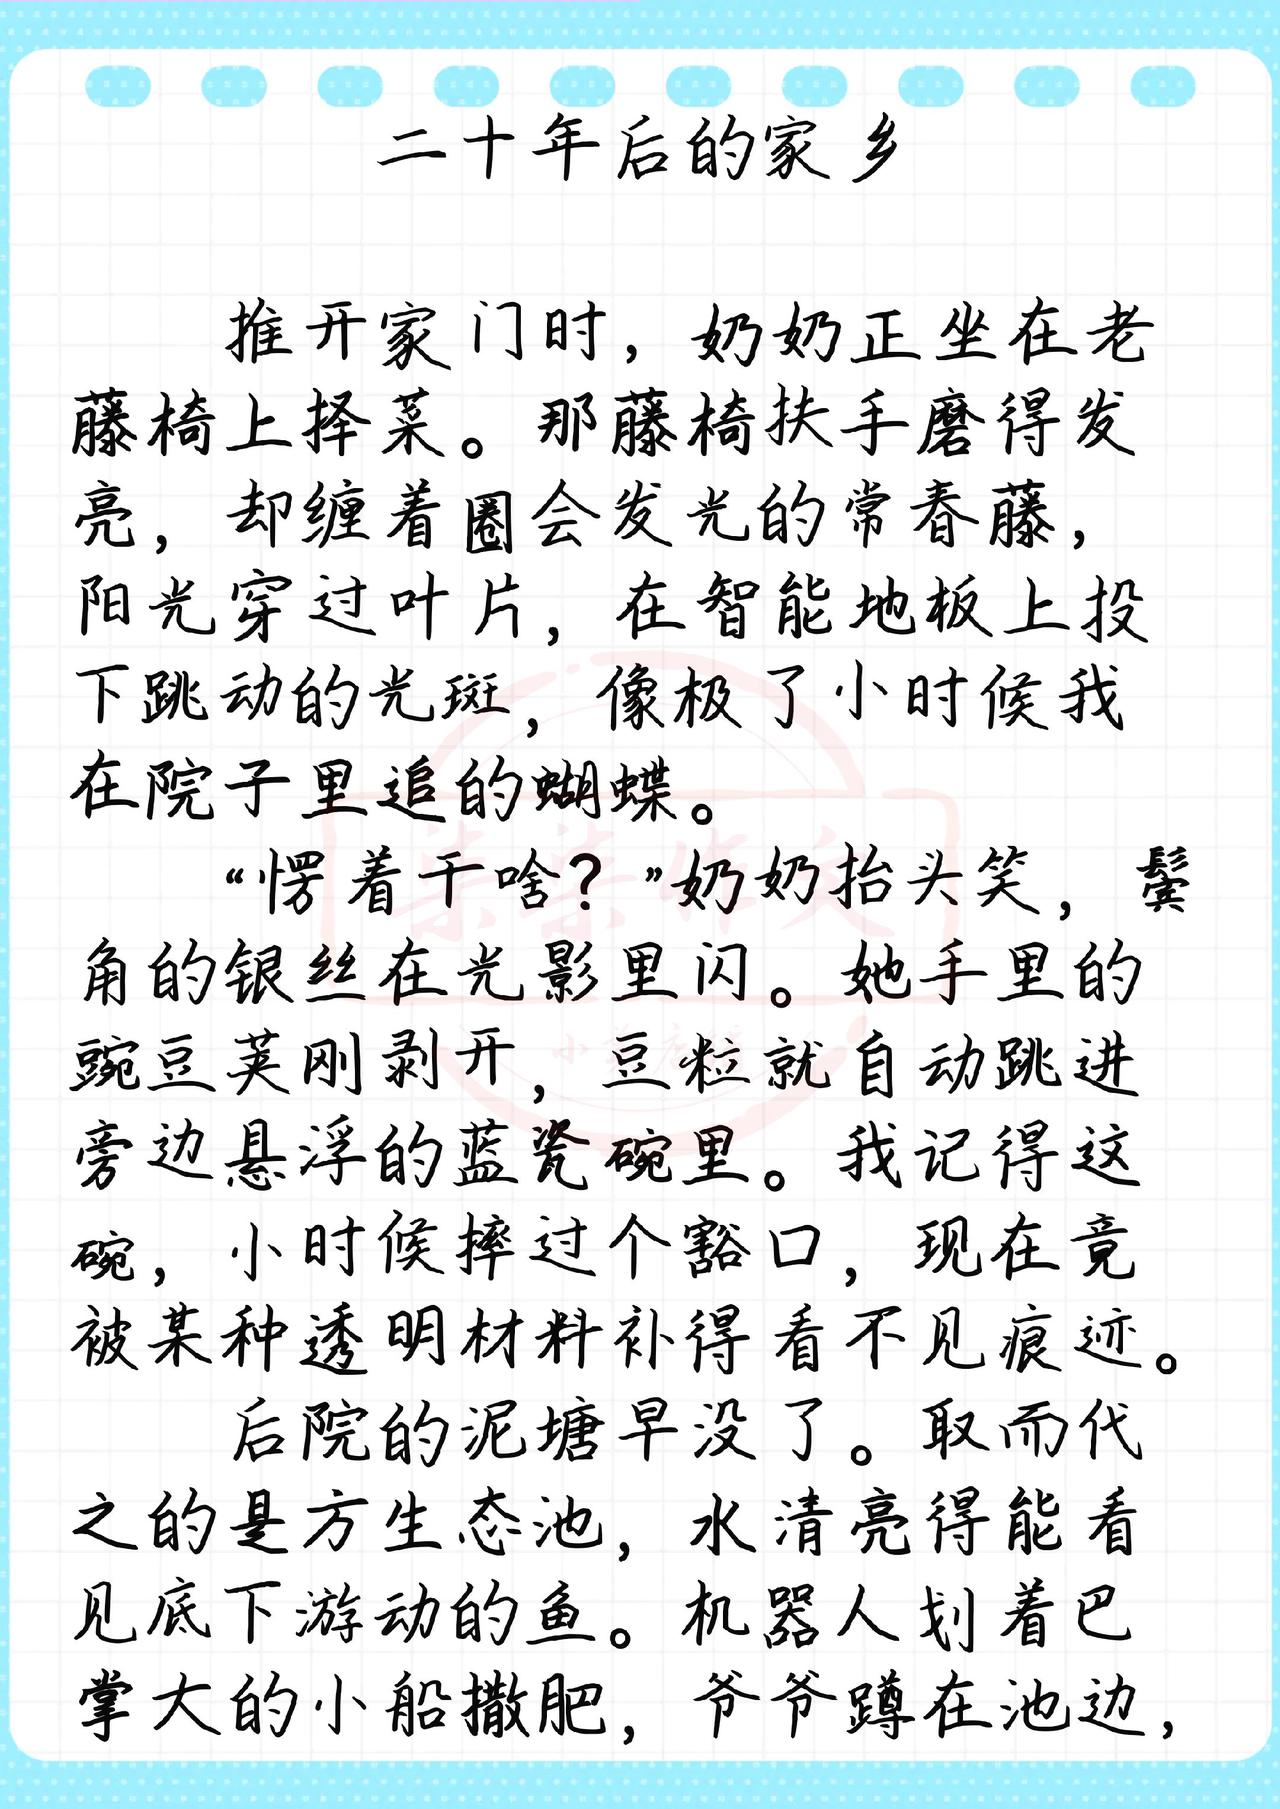 二十年后的家乡
推开家门时，奶奶正坐在老
藤椅上择菜。那藤椅扶手磨得发
亮，却缠着圈会发光的常春藤，
阳光穿过叶片，在智能地板上投
下跳动的光斑，像极了小时候我
在院子里追的蝴蝶。
“愣着干啥？”奶奶抬头笑，鬓
角的银丝在光影里闪。她手里的
豌豆荚刚剥开，豆粒就自动跳进
旁边悬浮的蓝瓷碗里。我记得这
碗，小时候摔过个豁口，现在竟
被某种透明材料补得看不见痕迹。
后院的泥塘早没了。取而代
之的是方生态池，水清亮得能看
见底下游动的鱼。机器人划着巴
掌大的小船撒肥，爷爷蹲在池边，